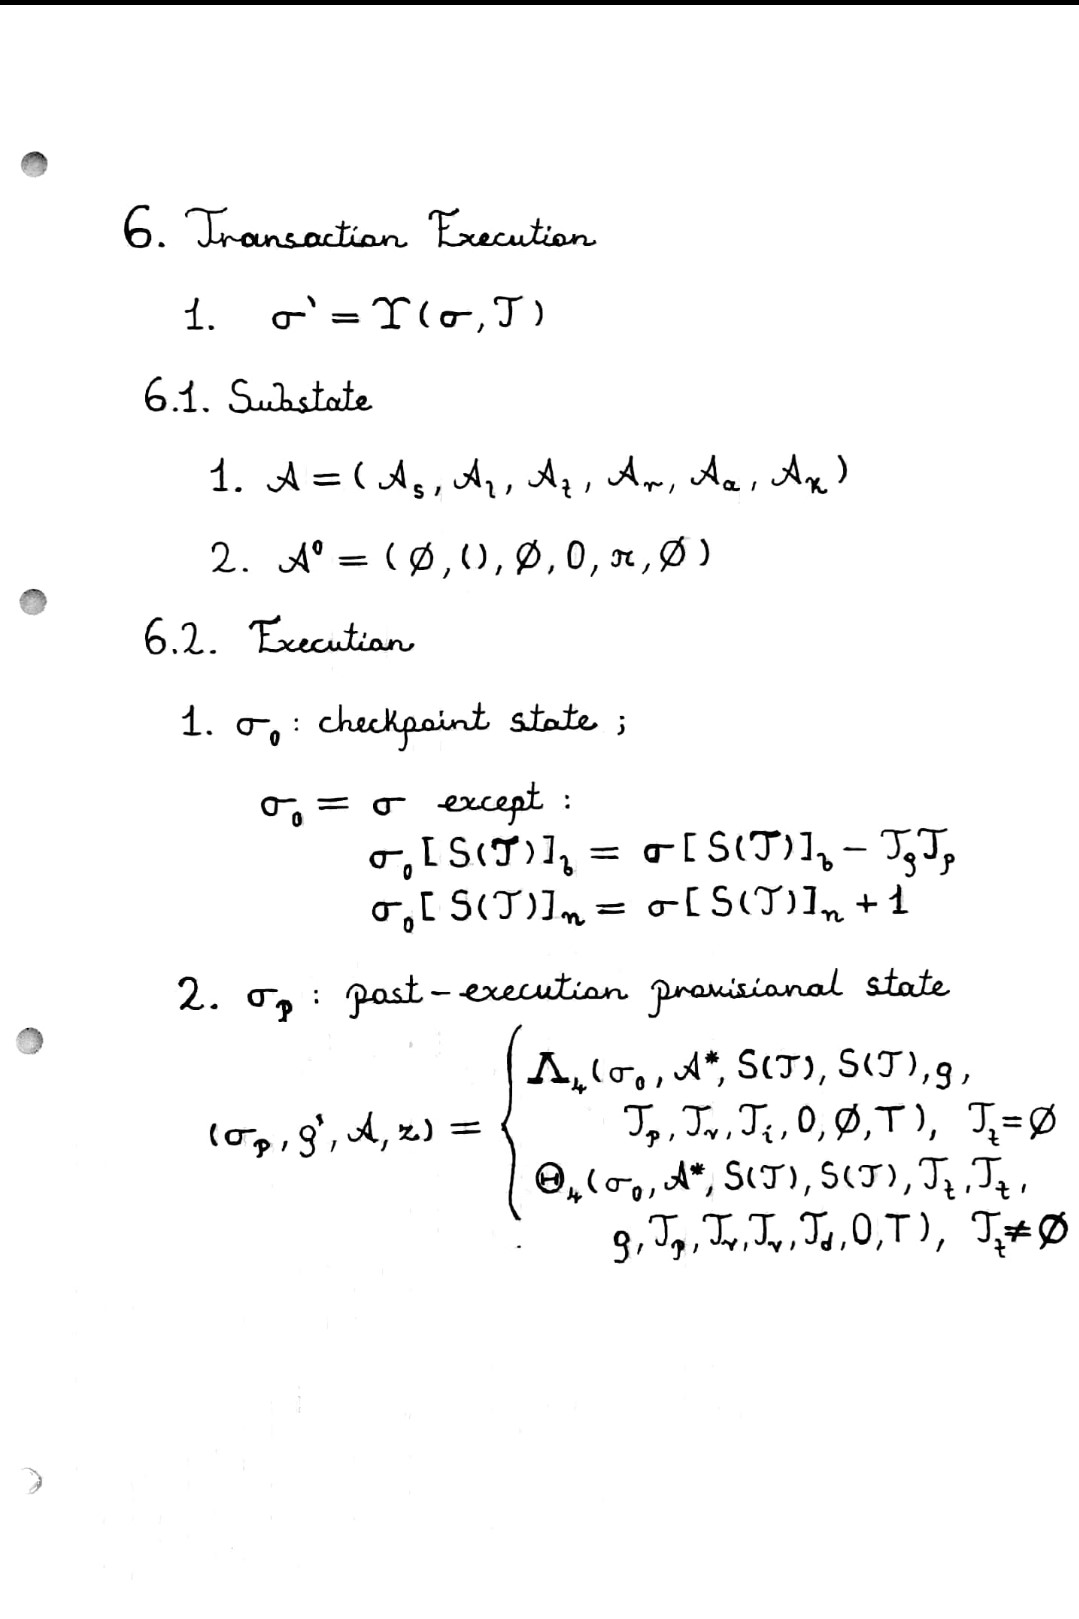 6. Transaction Execution
1. σ' = Υ(σ, T)
6.1. Substate
1. A = (A_s, A_l, A_t, A_r, A_a, A_κ)
2. A⁰ = (Ø, (), Ø, 0, π, Ø)
6.2. Execution
1. σ₀ : checkpoint state ;
σ₀ = σ except :
σ₀[S(T)]_b = σ[S(T)]_b − T_g T_p
σ₀[S(T)]_n = σ[S(T)]_n + 1
2. σ_p : post-execution provisional state
(σ_p, g', A, z) = { Λ₄(σ₀, A*, S(T), S(T), g,
T_p, T_v, T_i, 0, Ø, T), T_t = Ø
Θ₄(σ₀, A*, S(T), S(T), T_t, T_t,
g, T_p, T_v, T_v, T_d, 0, T), T_t ≠ Ø